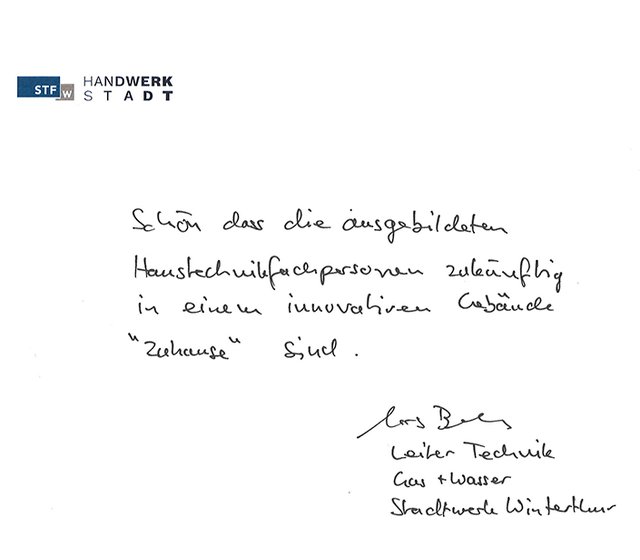 STFW HANDWERK
STADT
Schön dass die ausgebildeten
Haustechnikfachpersonen zukünftig
in einem innovativen Gebäude
"Zuhause" sind.
Leiter Technik
Gas + Wasser
Stadtwerk Winterthur